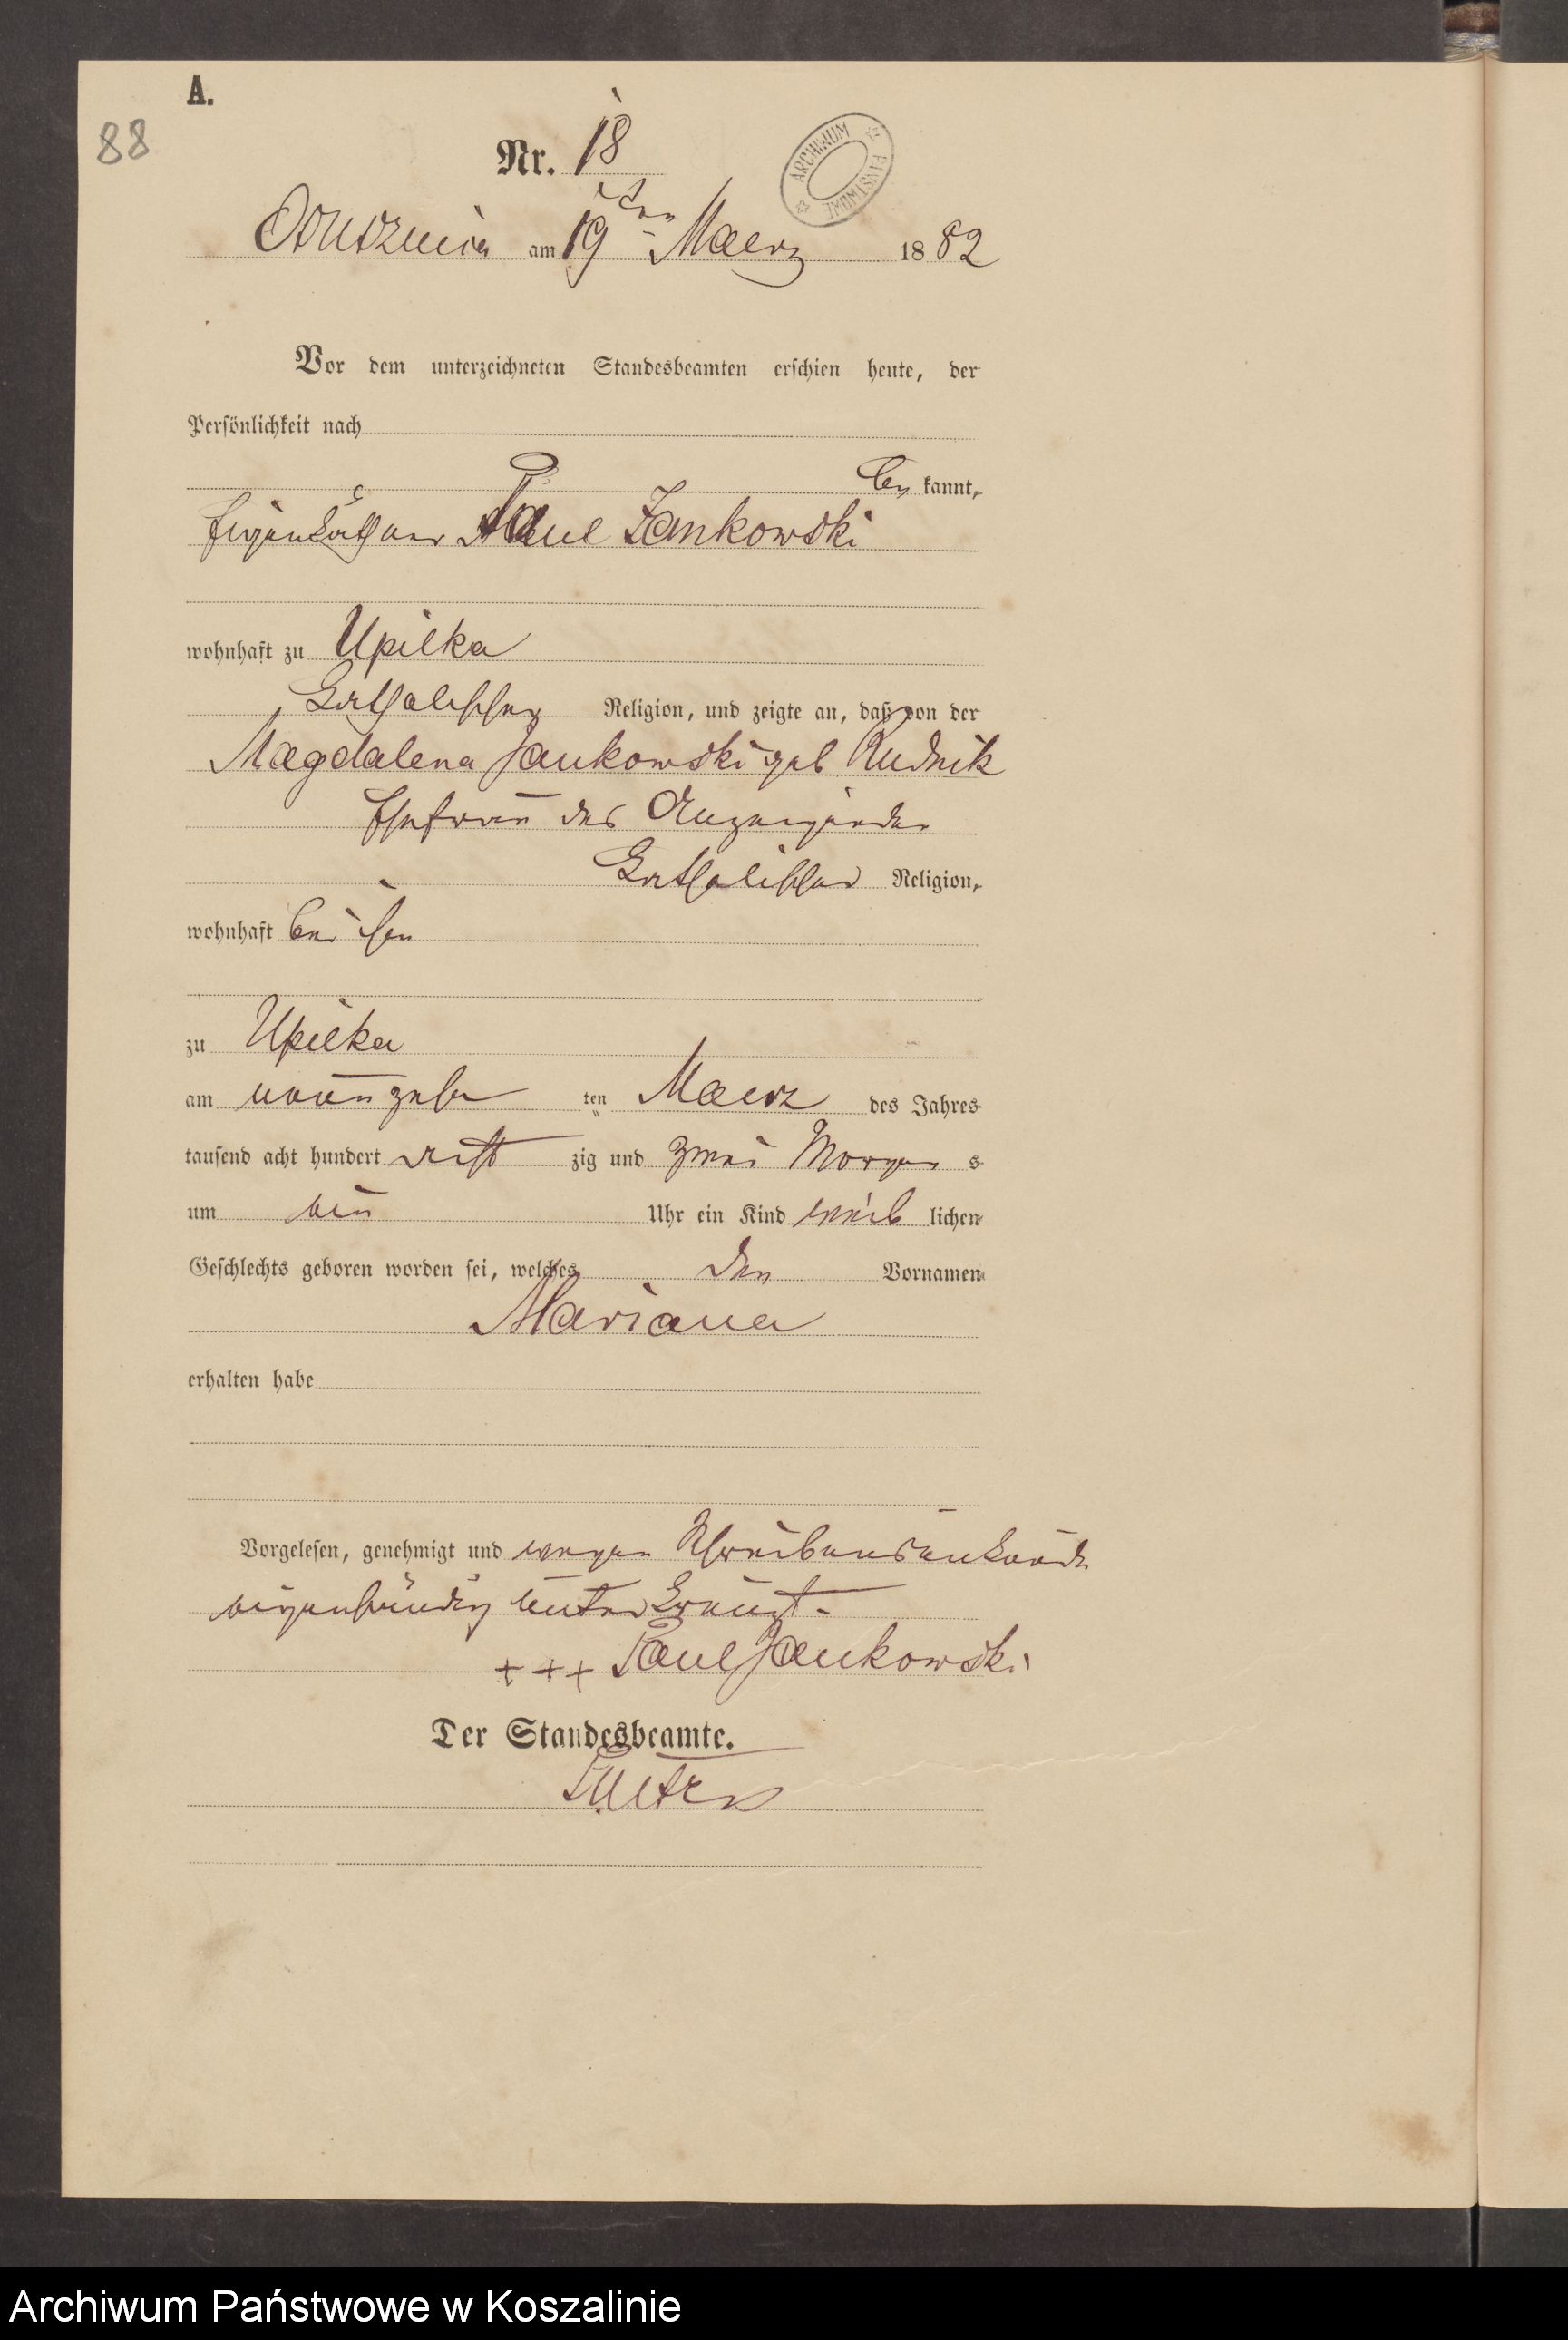 A.
88
Nr. 18
ARCHIWUM PAŃSTWOWE
Ossusznica am 19ten Maerz 1882
Vor dem unterzeichneten Standesbeamten erschien heute, der
Persönlichkeit nach
be kannt,
Eigenkäthner Paul Jankowski
wohnhaft zu Upilka
katholischer Religion, und zeigte an, daß von der
Magdalena Jankowski geb Rudnik
Ehefrau des Anzeigenden
katholischer Religion,
wohnhaft bei ihm
zu Upilka
am neunzehn ten Maerz des Jahres
tausend acht hundert acht zig und zwei Morgen s
um ein Uhr ein Kind weib lichen
Geschlechts geboren worden sei, welches den Vornamen
Mariana
erhalten habe
Vorgelesen, genehmigt und wegen Schreibensunkunde
eigenhändig unterkreuzt.
+++ Paul Jankowski
Der Standesbeamte.
Archiwum Państwowe w Koszalinie